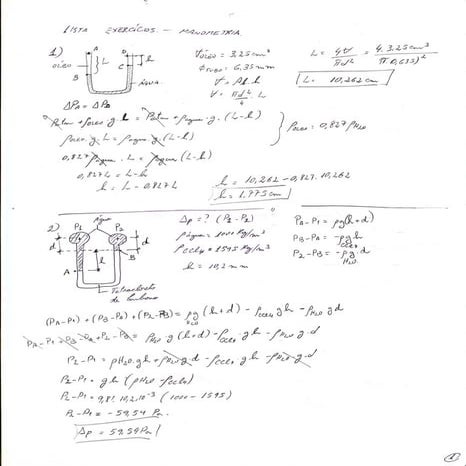 LISTA EXERCÍCIOS - MANOMETRIA
1)
A D
ÓLEO L h
B C
ÁGUA
Vóleo = 3,25 cm³
φtubo = 6,35 mm
V = A·h
V = πd²/4 · L
L = 4V/πd² = 4·3,25 cm³/π(0,635)²
L = 10,262 cm
ΔPA = ΔPD
Patm + ρóleo·g·L = Patm + ρágua·g·(L-h)
ρóleo·g·L = ρágua·g(L-h)
ρóleo = 0,827 ρH2O
0,827 ρágua·L = ρágua(L-h)
0,827L = L-h
h = L - 0,827L
h = 10,262 - 0,827·10,262
h = 1,775 cm
2)
água
P1 P2
d d
h
A B
Tetracloreto de carbono
Δp = ? (P2-P1)
ρágua = 1000 kg/m³
ρCCl4 = 1595 kg/m³
h = 10,2 mm
PA-P1 = ρg(h+d)
H2O
PB-PA = -ρgh
CCl4
P2-PB = -ρg·d
H2O
(PA-P1) + (PB-PA) + (P2-PB) = ρg(h+d) - ρCCl4gh - ρH2O gd
H2O
PA-P1+PB-PA+P2-PB = ρH2O g(h+d) - ρCCl4·gh - ρH2O g·d
P2-P1 = ρH2O·gh + ρH2O g·d - ρCCl4·gh - ρH2O g·d
P2-P1 = gh(ρH2O - ρCCl4)
P2-P1 = 9,81·10,2·10⁻³(1000-1595)
P2-P1 = -59,54 Pa.
Δp = 59,54 Pa